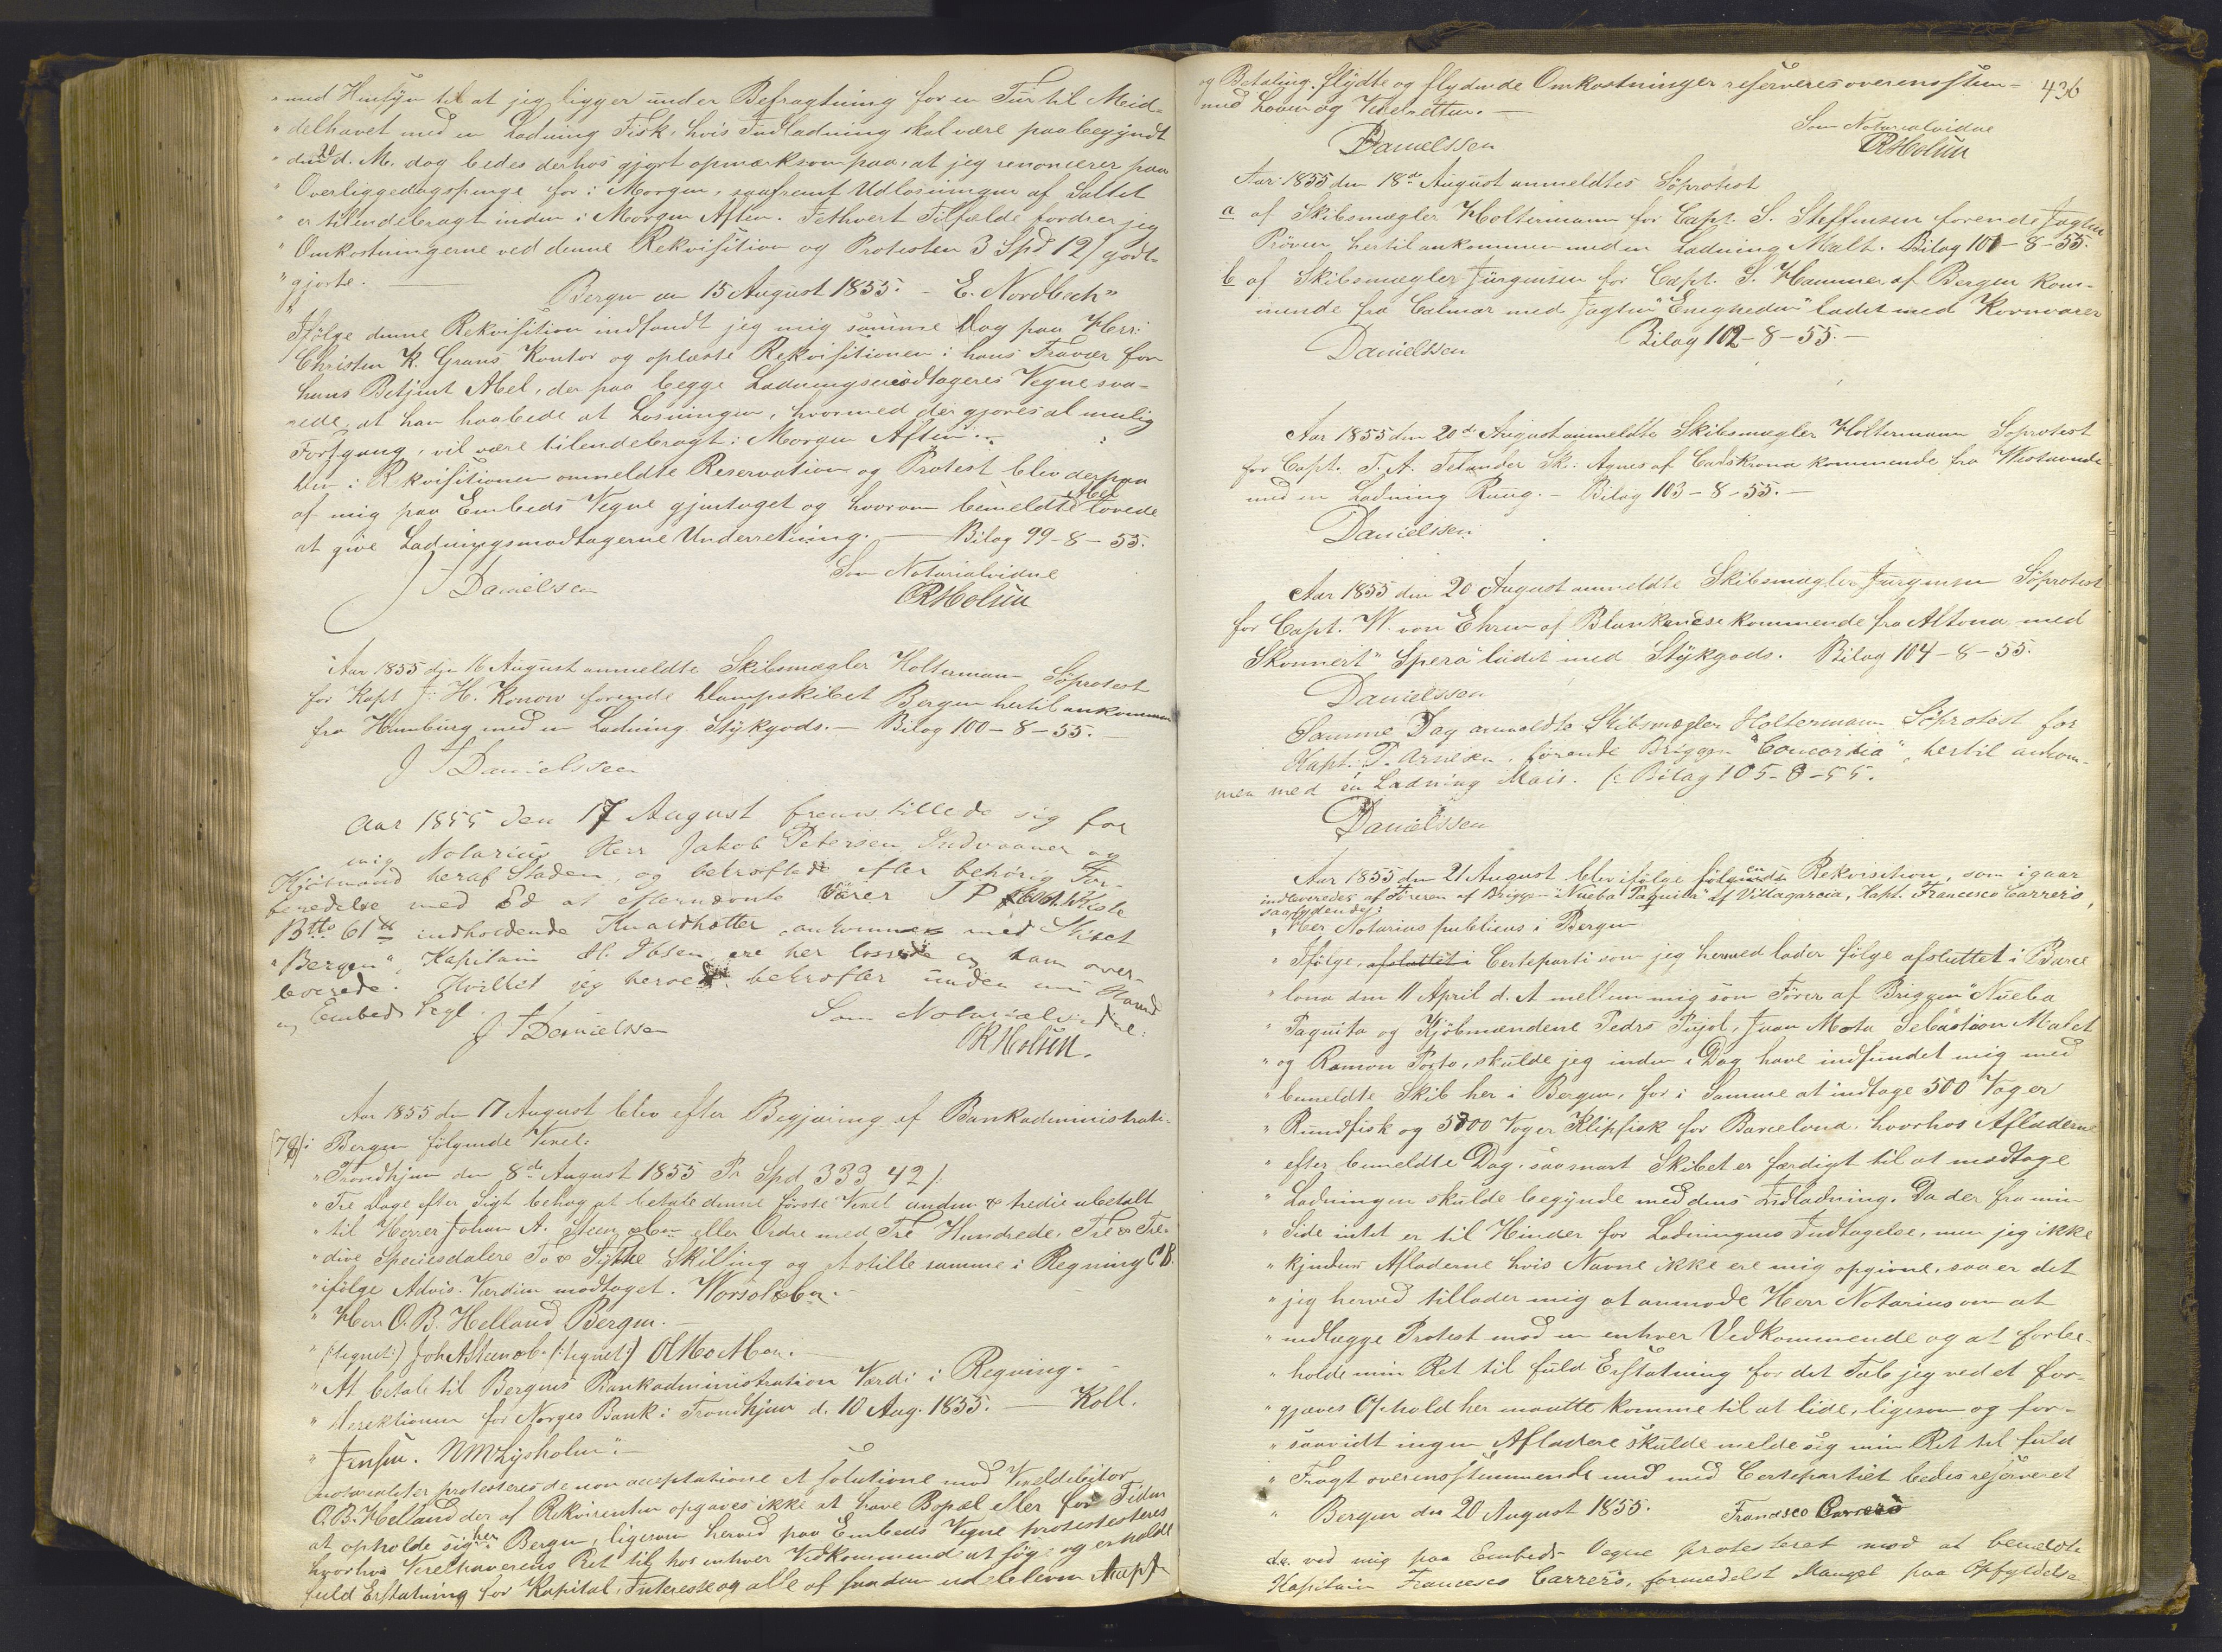 "med Hensyn til at jeg ligger under Befragtning for en Tur til Mid-
"delhavet med en Ladning Fisk, hvis Indladning skal være paabegyndt
"den 20 d. M. dog bedes derhos gjort opmærksom paa, at jeg renoncerer paa
"Overliggedagspenge for i Morgen, saafremt Udlosningen af Saltet
"er tilendebragt inden i Morgen Aften. I ethvert Tilfælde fordrer jeg
"Omkostningerne ved denne Rekvisition og Protesten 3 Spd 12/ godt-
"gjorte.
Bergen den 15 August 1855. - E. Nordbech"
Ifölge denne Rekvisition indfandt jeg mig samme Dag paa Herr
Christen K. Grans Kontor og oplæste Rekvisitionen i hans Fravær for
hans Betjent Abel, der paa begge Ladningsmodtageres Vegne sva-
rede, at han haabede at Losningen, hvormed der gjøres al mulig
Fortgang, vil være tilendebragt i Morgen Aften.
Den i Rekvisitionen anmeldte Reservation og Protest blev derpaa
af mig paa Embeds Vegne gjentaget og hvorom bemeldte Abel lovede
at give Ladningsmodtagerne Underretning. — Bilag 99-8-55.
Som Notarialvidne
J Danielssen
CRHolsen
Aar 1855 den 16 August anmeldte Skibsmægler Holtermann Söprotest
for Kapt. J. H. Konow förende Dampskibet Bergen hertil ankommen
fra Hamburg med en Ladning Stykgods. — Bilag 100-8-55.
J Danielssen
Aar 1855 den 17 August fremstillede sig for
mig Notarius Herr Jakob Petersen, Indvaaner og
Kjöbmand heraf Staden, og bekræftede efter behörig For-
beredelse med Ed at efternævnte Varer J P Kiste
Btto 61 indholdende ankommen med Skibet
"Bergen", Kapitain ere her lossede og ham over-
leverede. Hvilket jeg herved bekræfter under min Haand
og Embeds Segl.
Som Notarialvidne:
J Danielssen
CRHolsen.
Aar 1855 den 17 August blev efter Begjæring af Bankadministrati-
(79) i Bergen følgende Vexel:
"Trondhjem den 8de August 1855 Pr Spd 333 42/
"Tre Dage efter Sigt behag at betale denne første Vexel anden & tredie ubetalt
"til Herrer Johan A. eller Ordre med Tre Hundrede, Tre & Tre-
"dive Speciesdalere To & Fyrti Skilling og stille samme i Regning
"ifölge Advis. Værdien modtaget.
"Herr O. B. Helland Bergen. —
"(:tegnet:) (:tegnet:)
"At betale til Bergens Bankadministration Værdi i Regning.
"Direktionen for Norges Bank i Trondhjem d. 10 Aug. 1855. — Koll.
"Jensen. Lysholm".
notarialiter protesteres de non acceptatione et solutione mod Vexeldebitor
O.B. Helland der af Rekvirenten opgaves ikke at have Bopæl eller for Tiden
at opholde sig her i Bergen, ligesom herved paa Embeds Vegne protesteres
hvorhos Vexelhaverens Ret til hos enhver Vedkommende at söge og erholde
fuld Erstatning for Kapital, Interesse og alle af saadan udebleven Accept
436
og Betaling flydte og flydende Omkostninger reserveres overensstem-
med Loven og Vexelretten. —
Som Notarialvidne
Danielssen
CRHolsen
Aar 1855 den 18de August anmeldtes Söprotest
a af Skibsmægler Holtermann for Capt. S. Steffensen forende Jagten
Pröven, hertil ankommen med en Ladning Malt. Bilag 101-8-55.
b af Skibsmægler Jürgensen for Capt. S. Hammer af Bergen kom-
mende fra Calmar med Jagten "Enigheden" ladet med Kornvarer
Bilag 102-8-55. —
Danielssen
Aar 1855 den 20de August anmeldte Skibsmægler Holtermann Söprotest
for Capt. T. A. Telander Sk: Agnes af kommende fra
med en Ladning Ruug. — Bilag 103-8-55. —
Danielssen
Aar 1855 den 20 August anmeldte Skibsmægler Jurgensen Söprotest
for Capt. W. von Ehren af Blankenese kommende fra Altona med
Skonnert "Spera" ladet med Stykgods. Bilag 104-8-55.
Danielssen
Samme Dag anmeldte Skibsmægler Holtermann Söprotest for
Kapt. P. Arnesen, förende Briggen "Concordia", hertil ankom-
men med en Ladning Mais. Bilag 105-8-55.
Danielssen
Aar 1855 den 21 August blev ifölge følgende Rekvisition, som igaar
indleveredes af Föreren af Briggen "Nueba Paquita" af Villagarcia, Kapt. Francesco Carreró,
saalydende:
"Herr Notarius publicus i Bergen
"Ifölge, afsluttet i Certeparti som jeg hermed lader følge afsluttet i Barce
"lona den 11 April d. A mellem mig som Förer af Briggen "Nueba
"Paquita og Kjöbmændene Pedro Pujol, Juan Mota Sebastian Malet
"og Ramon Porto, skulde jeg inden i Dag have indfundet mig med
"bemeldte Skib her i Bergen, for i Samme at indtage 500 Voger
"Rundfisk og 5000 Voger Klipfisk for Barcelona, hvorhos Afladerne
"efter bemeldte Dag, saasnart Skibet er færdigt til at modtage
"Ladningen skulde begynde med dens Indladning. Da der fra min
"Side intet er til Hinder for Ladningens Indtagelse, men jeg ikke
"kjender Afladerne hvis Navne ikke ere mig opgivne, saa er det
"jeg herved tillader mig at anmode Herr Notarius om at
"nedlægge Protest mod en enhver Vedkommende og at forbe-
"holde min Ret til fuld Erstatning for det Tab jeg ved et for-
"gjæves Ophold her maatte komme til at lide, ligesom og for-
"saavidt ingen Afladere skulde melde sig min Ret til fuld
"Fragt overensstemmende med med Certepartiet bedes reserveret
"Bergen den 20 August 1855. Francisco Carreró
ved mig paa Embeds Vegne protesteret mod at bemeldte
Kapitain Francesco Carreró, formedelst Mangel paa Opfyldelse